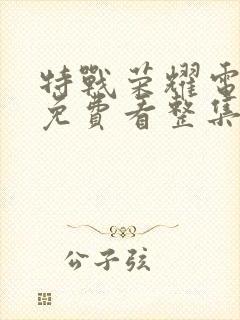 特戰榮耀電
免費看整集
公子弦